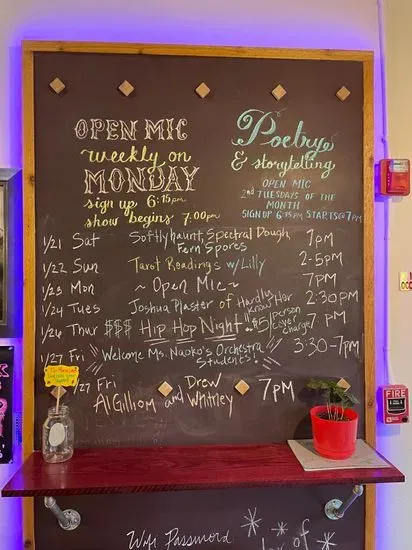 OPEN MIC
weekly on
MONDAY
sign up 6:15pm
show begins 7:00pm
Poetry
& storytelling
OPEN MIC
2nd TUESDAYS OF THE
MONTH
SIGN UP 6:45PM STARTS@7PM
1/21 Sat Softlyhaunt, Spectral Dough, 7pm
Fern Spores
1/22 Sun Tarot Readings w/ Lilly 2-5pm
1/23 Mon ~ Open Mic ~ 7PM
1/24 Tues Joshua Plaster of Hardly Know Her 2:30 PM
1/26 Thur $$$ Hip Hop Night..$5/person cover charge 7 PM
1/27 Fri Welcome Ms. Naoko's Orchestra 3:30-7PM
Students!
1/27 Fri Drew 7PM
Al Gilliom and Whitney
FIRE
Wifi Password